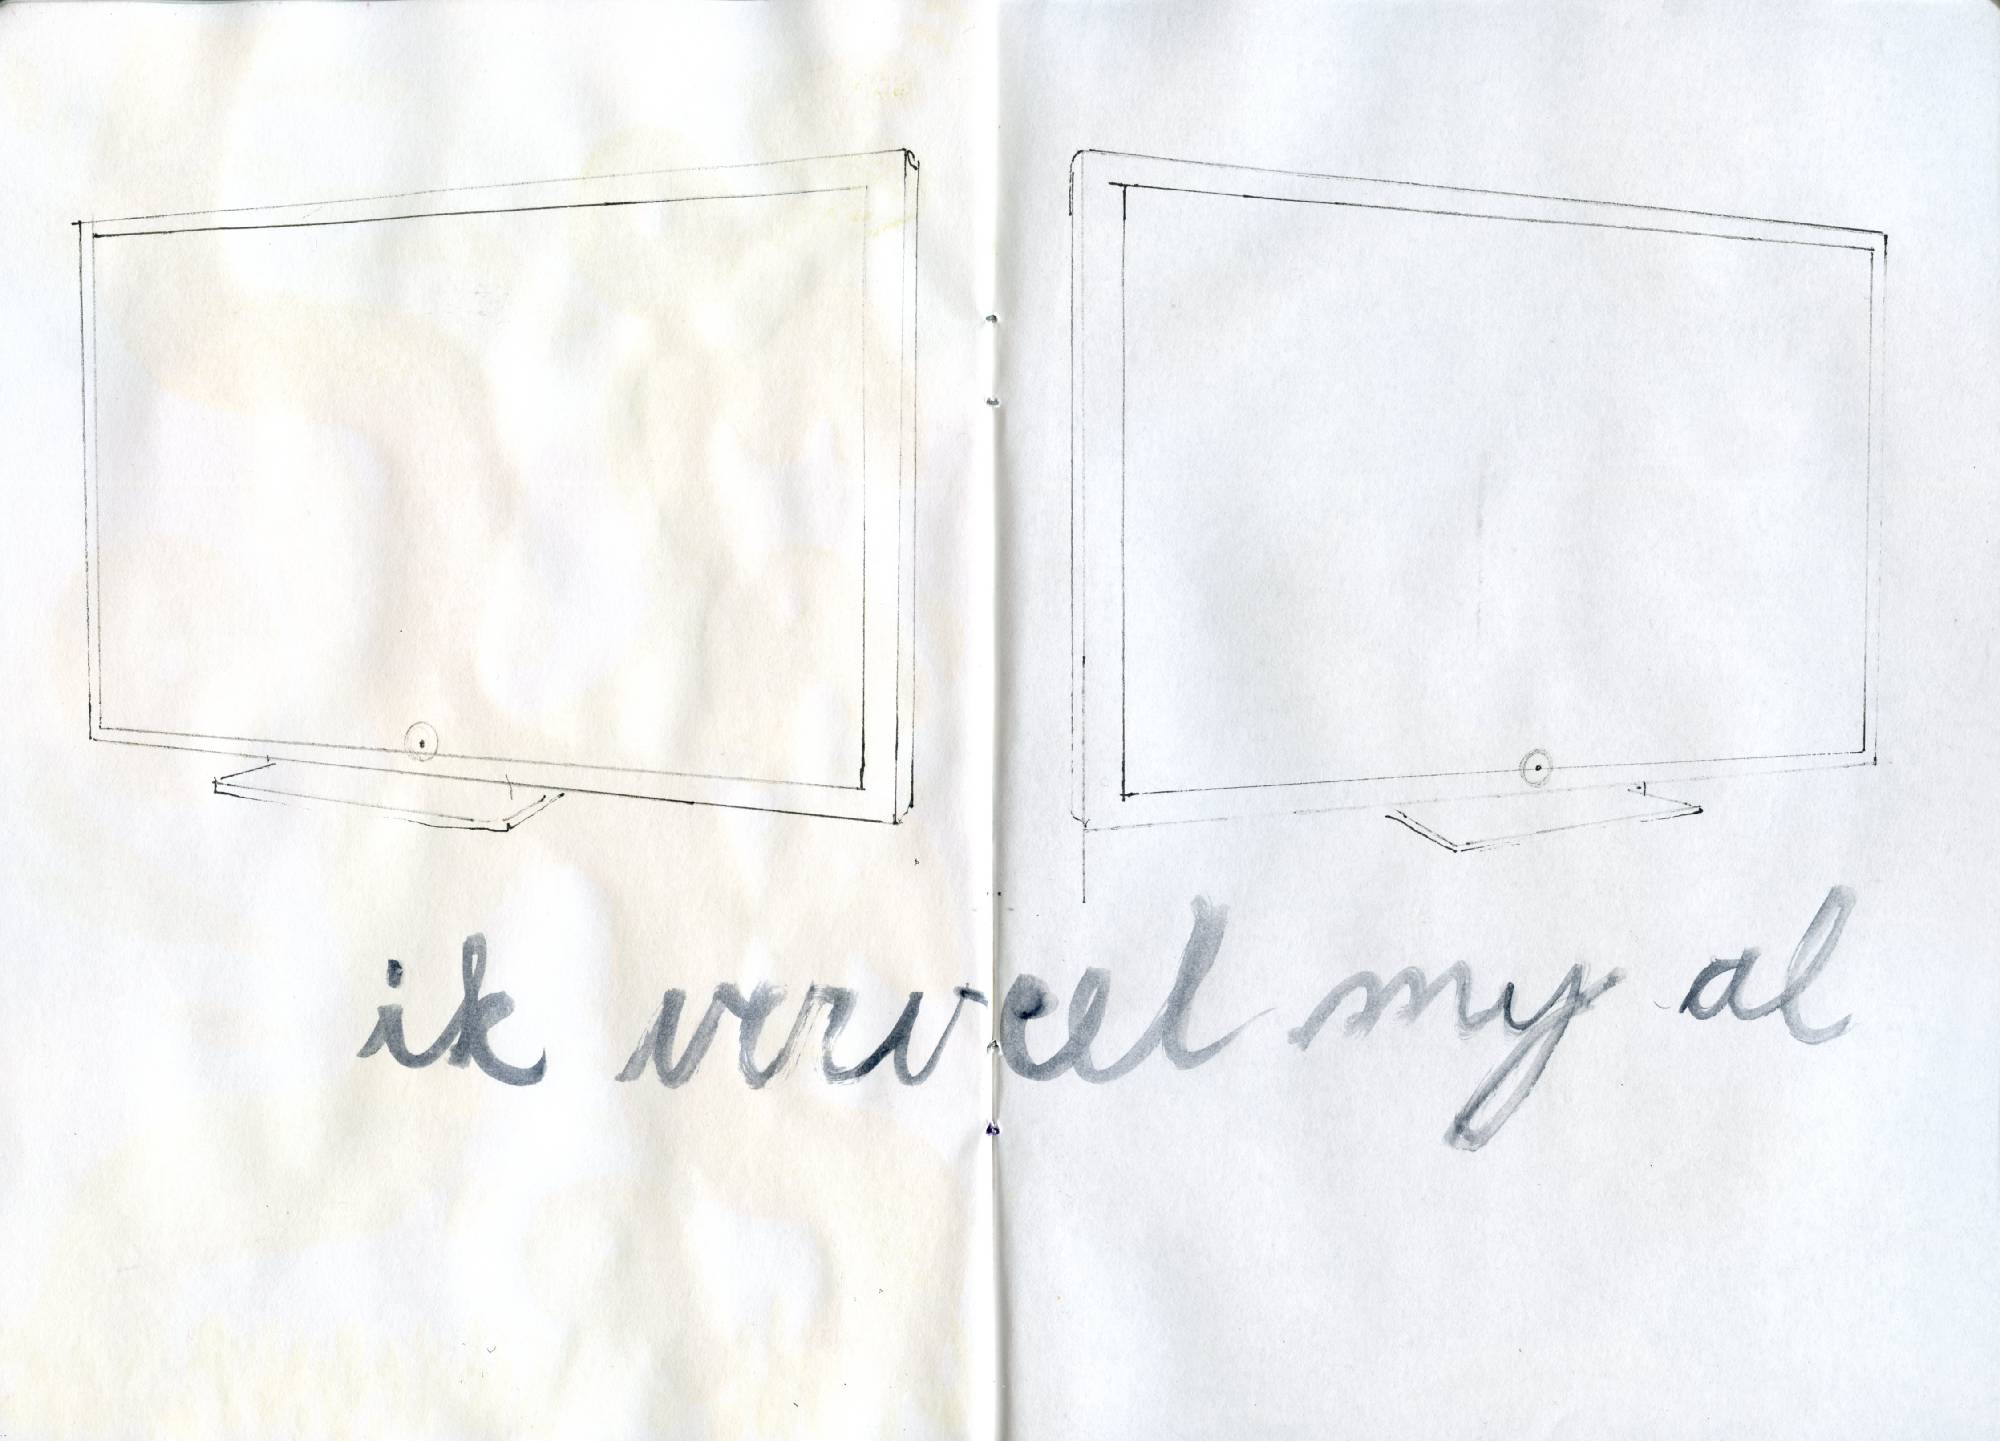 ik verveel my al